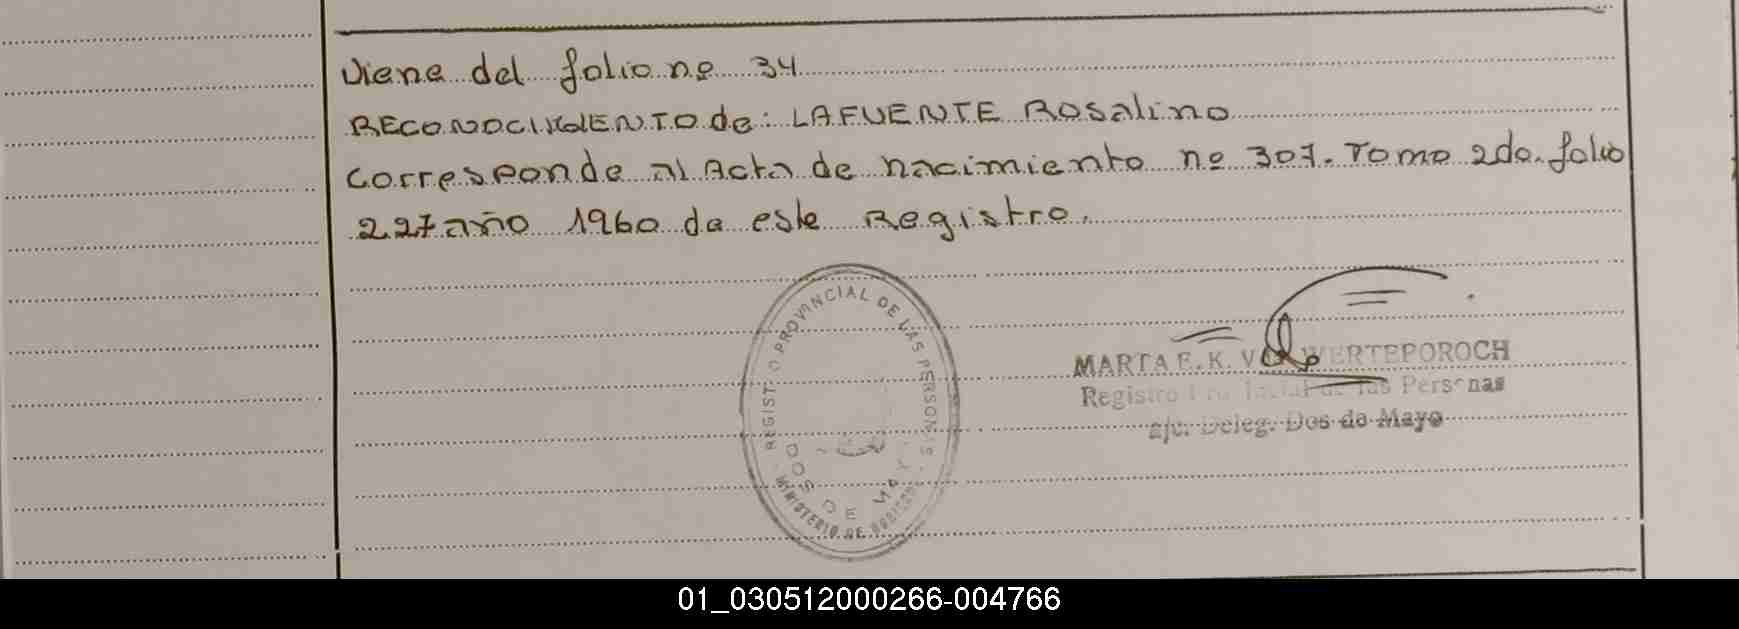 Viene del folio nº 34
RECONOCIMIENTO de: LAFUENTE Rosalino
Corresponde al Acta de nacimiento nº 307. Tomo 2do. folio
227 año 1960 de este Registro.
REGISTRO PROVINCIAL DE LAS PERSONAS
DOS DE MAYO
MINISTERIO DE GOBIERNO
MARTA E. K. WERTEPOROCH
Registro de las Personas
a/c. Deleg. Dos de Mayo
01_030512000266-004766